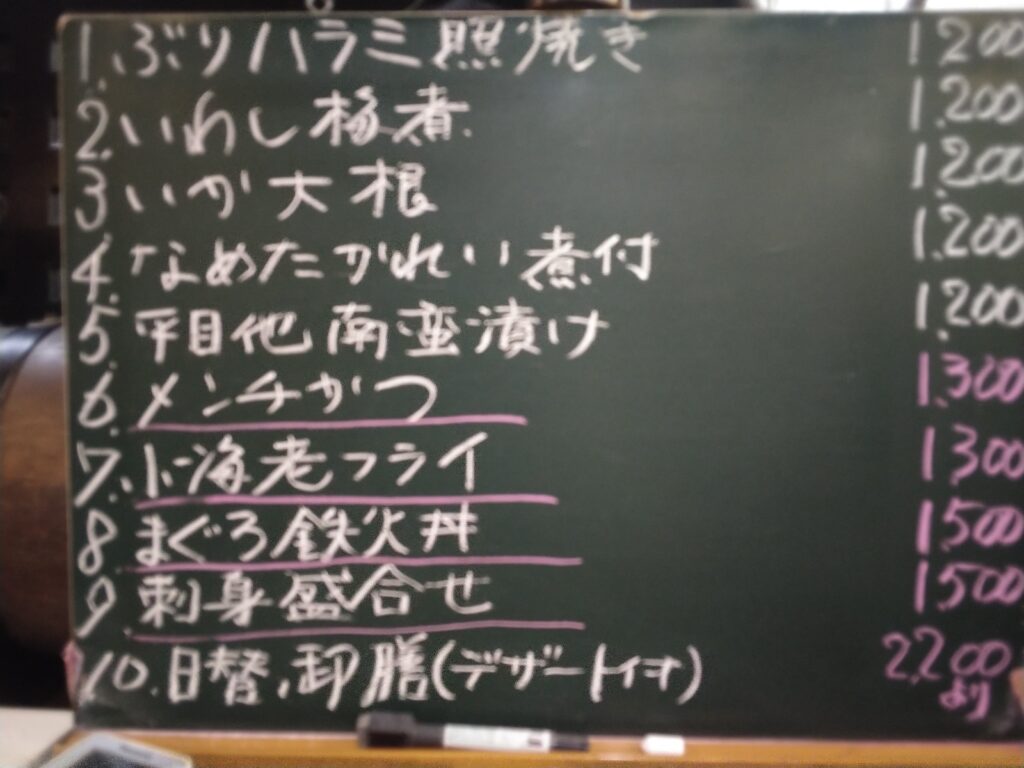 1. ぶりハラミ照焼き 1,200
2. いわし梅煮 1,200
3. いか大根 1,200
4. なめたがれい煮付 1,200
5. 平目他南蛮漬け 1,200
6. メンチかつ 1,300
7. 小海老フライ 1,300
8. まぐろ鉄火丼 1,500
9. 刺身盛合せ 1,500
10. 日替、御膳(デザート付) 2,200
より